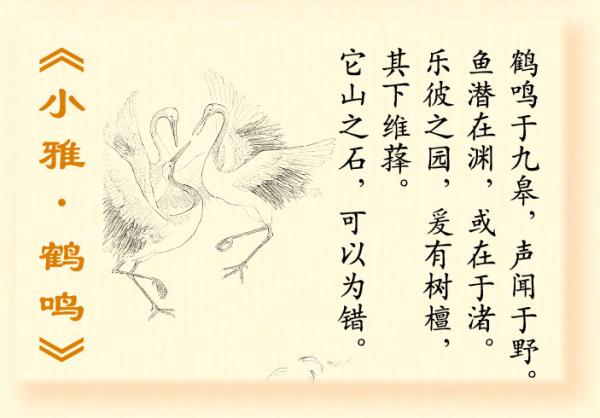 《小雅·鹤鸣》
鹤鸣于九皋，声闻于野。
鱼潜在渊，或在于渚。
乐彼之园，爰有树檀，
其下维萚。
它山之石，可以为错。